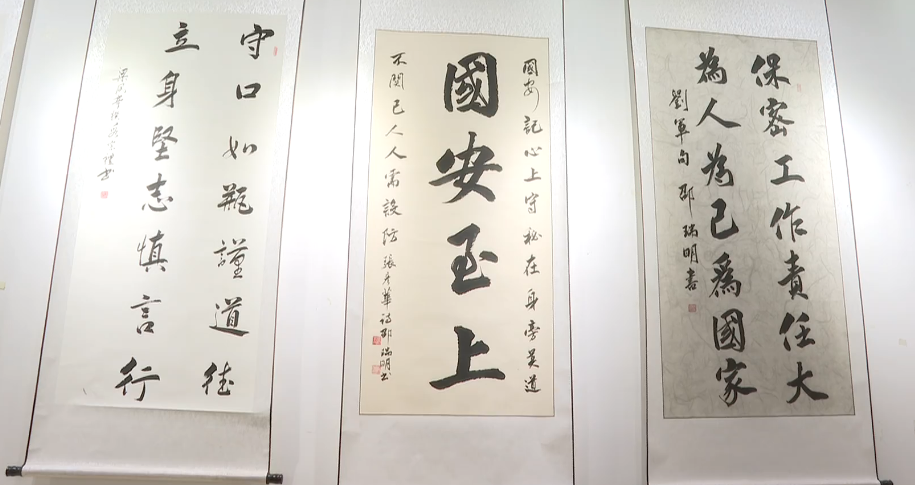 保密工作責任大
為人為己爲國家
劉軍句 邵瑞明書
國安記心上守秘在身旁莫道
國安至上
不関己人人需設防 張華詩邵瑞明书
守口如瓶謹道德
立身堅志慎言行